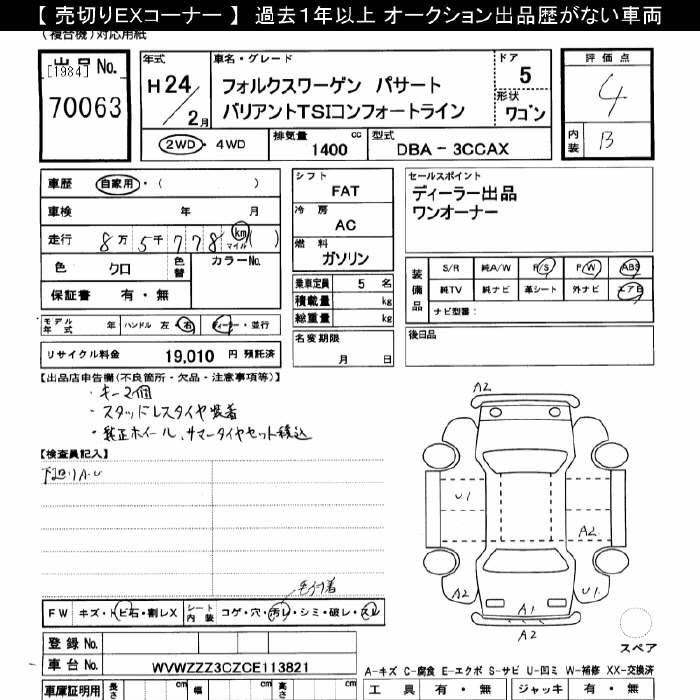 【 売切りEXコーナー 】 過去１年以上 オークション出品歴がない車両
(複合機)対応用紙
出品 No.
[1984]
70063
年式
H24/2月
車名・グレード
フォルクスワーゲン パサート
バリアントTSIコンフォートライン
ドア
5
形状
ワゴン
評価点
4
内装
B
2WD・4WD
排気量 cc
1400
型式
DBA － 3CCAX
車歴 自家用・( )
車検 年 月
走行 8万5千778 km マイル ( )
色 クロ 色替 カラーNo.
保証書 有・無
シフト
FAT
冷房
AC
燃料
ガソリン
乗車定員 5 名
積載量 kg
総重量 kg
名変期限
月 日
セールスポイント
ディーラー出品
ワンオーナー
装備品
S/R 純A/W P/S P/W ABS
純TV 純ナビ 革シート 外ナビ エアB
ナビ型番:
後日品
モデル年式 年 ハンドル 左・右 ディーラー・並行
リサイクル料金 19,010 円 預託済
【出品店申告欄(不良箇所・欠品・注意事項等)】
・キー2個
・スタッドレスタイヤ装着
・純正ホイール、サマータイヤセット積込
【検査員記入】
下回りA-U
毛付着
FW キズ・トビ石・割レX シート内装 コゲ・穴・汚レ・シミ・破レ・スレ
登録 No.
車台 No. WVWZZZ3CZCE113821
車庫証明用 長さ cm 幅 cm 高さ cm
A2
U1
A2
A2
A1
U1
A2
スペア
A-キズ C-腐食 E-エクボ S-サビ U-凹ミ W-補修 XX-交換済
工具 有・無 ジャッキ 有・無